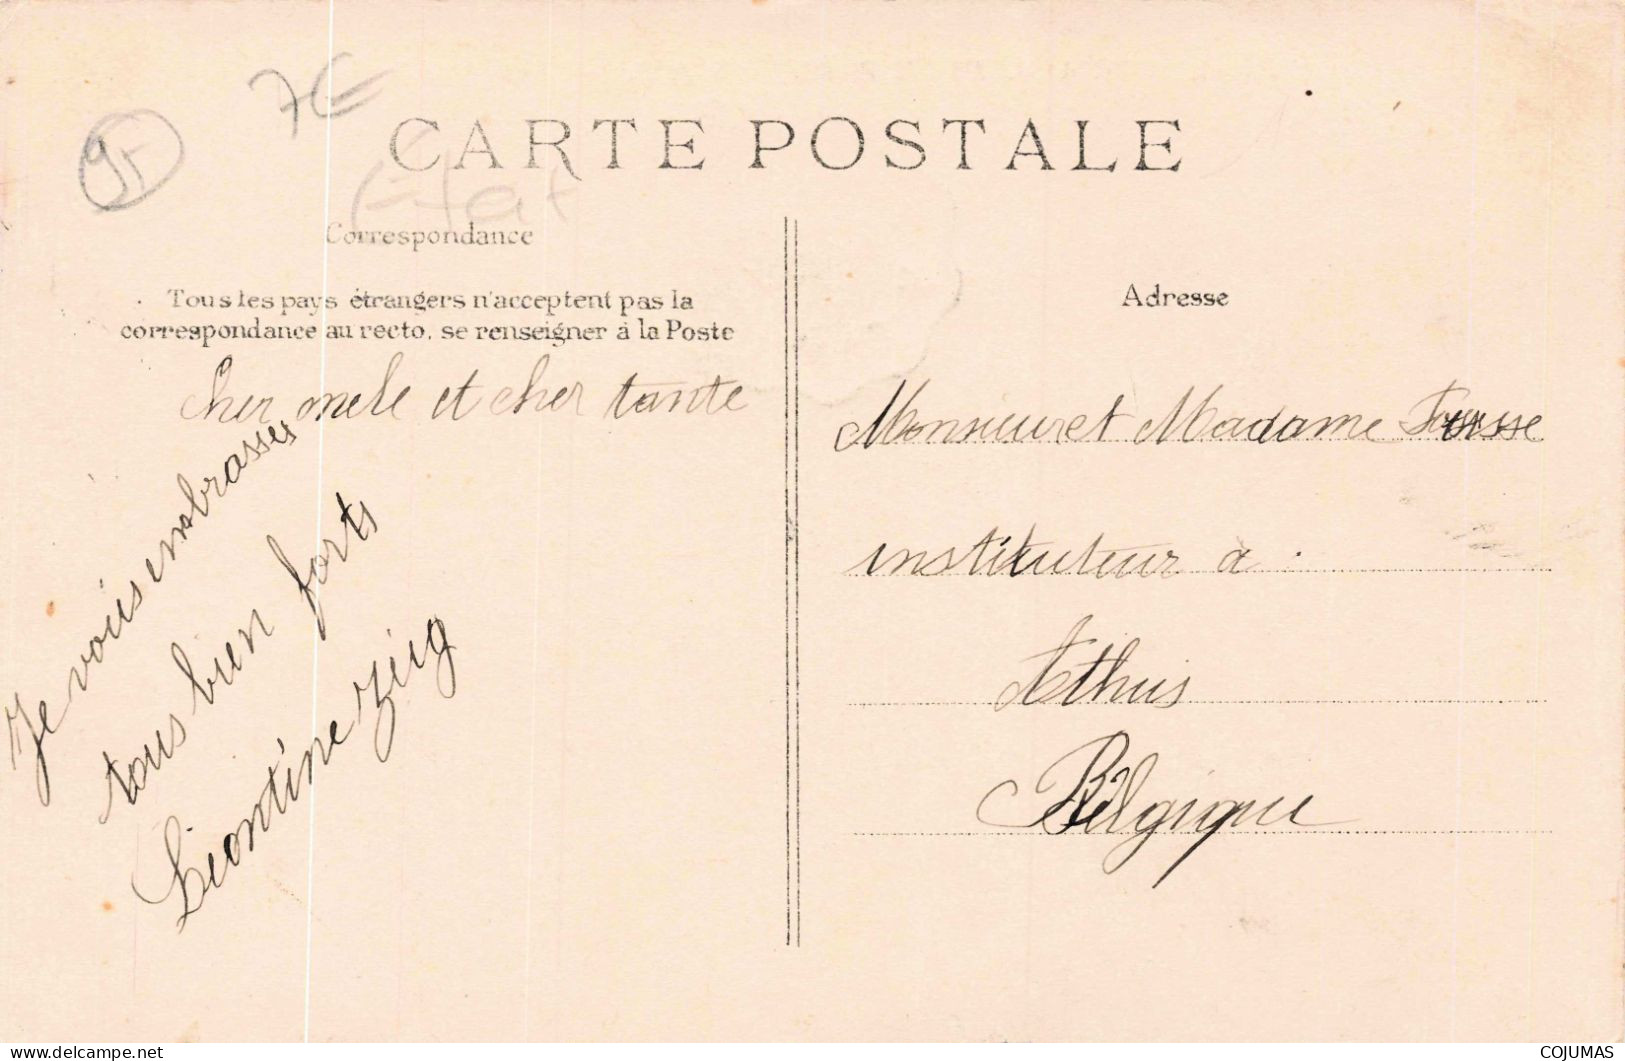 95
7€
CARTE POSTALE
Etat
Correspondance
Tous les pays étrangers n'acceptent pas la
correspondance au recto, se renseigner à la Poste
Cher et cher tante
Je vous embrasses
tous bien forts
Léontine Zeig
Adresse
Monsieur et Madame
instituteur à :
Athus
Belgique
www.delcampe.net
COJUMAS